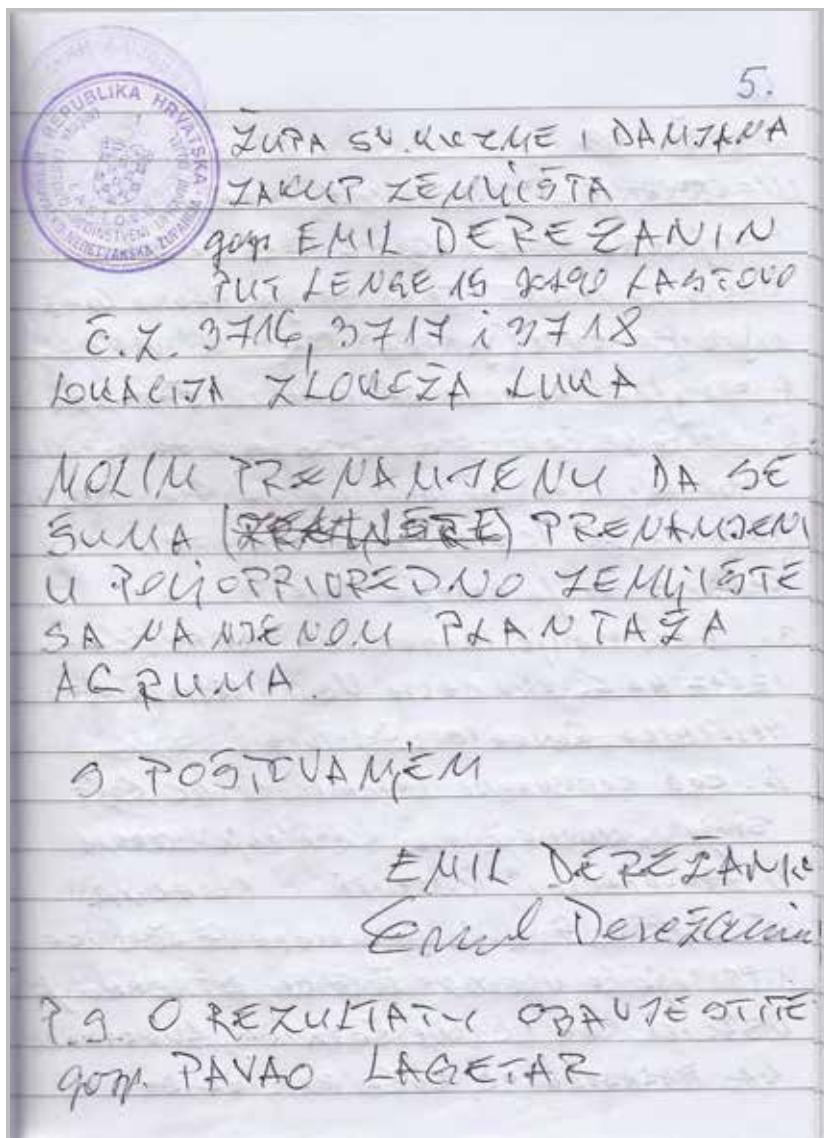 5.
REPUBLIKA HRVATSKA
ŽUPA SV. KUZME I DAMJANA
ZAKUP ZEMLJIŠTA
gosp. EMIL DEREŽANIN
PUT LENGE 15 20290 LASTOVO
Č.Z. 3716, 3717 i 3718
LOKACIJA ZLOKOVŽA LUKA
MOLIM PRENAMJENU DA SE
ŠUMA PRENAMJENI
U POLJOPRIVREDNO ZEMLJIŠTE
SA NAMJENOM PLANTAŽA
AGRUMA.
S POŠTOVANJEM
EMIL DEREŽANIN
Emil Derežanin
P.S. O REZULTATU OBAVJESTITE
gosp. PAVAO LAGETAR